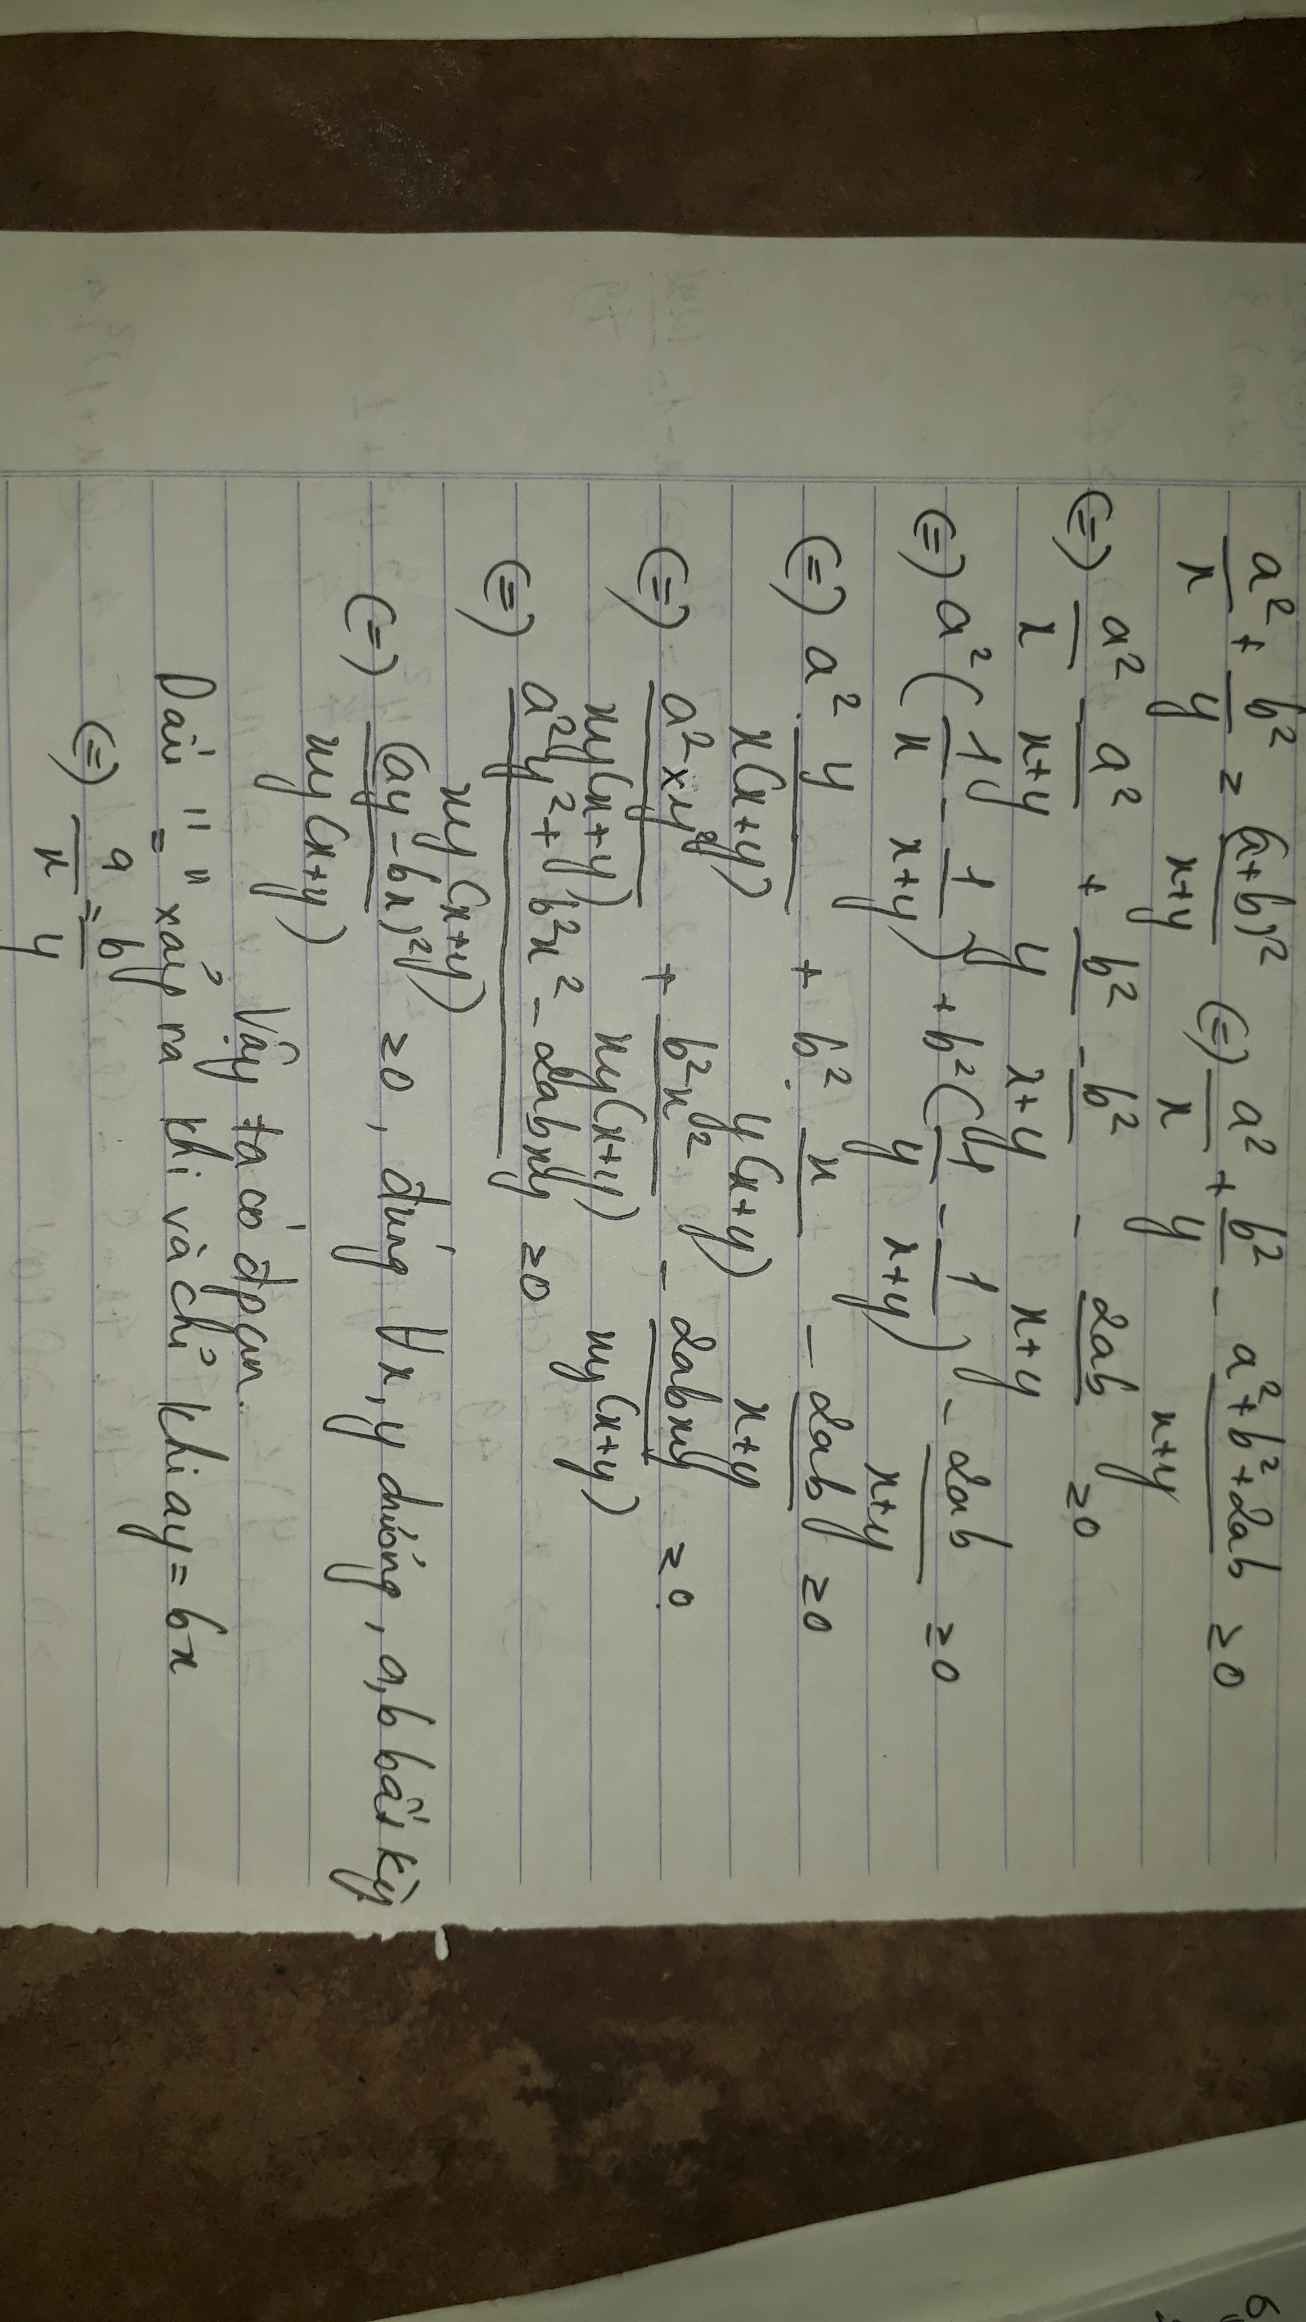 a²/x + b²/y ≥ (a+b)²/(x+y) (=) a²/x + b²/y - (a²+b²+2ab)/(x+y) ≥0
(=) a²/x - a²/(x+y) + b²/y - b²/(x+y) - 2ab/(x+y) ≥0
(=) a²(1/x - 1/(x+y)) + b²(1/y - 1/(x+y)) - 2ab/(x+y) ≥0
(=) a². y/(x(x+y)) + b². x/(y(x+y)) - 2ab/(x+y) ≥0
(=) a²y²/(xy(x+y)) + b²x²/(xy(x+y)) - 2abxy/(xy(x+y)) ≥0
(=) (a²y²+b²x²-2abxy)/(xy(x+y)) ≥0
(=) (ay-bx)²/(xy(x+y)) ≥0, đúng ∀x,y dương, a,b bất kỳ
Vậy ta có đpcm.
Dấu "=" xảy ra khi và chỉ khi ay=bx
(=) a/x = b/y
6